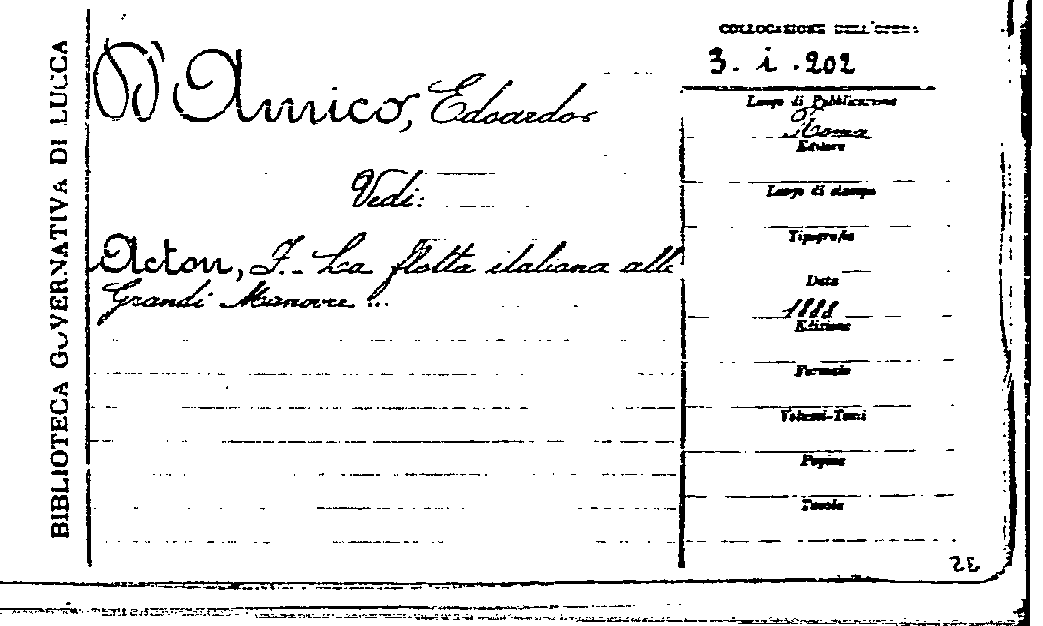 BIBLIOTECA GOVERNATIVA DI LUCCA
D'Amico, Edoardo
Vedi:
Acton, F. - La flotta italiana alle
Grandi Manovre...
COLLOCAZIONE DELL'OPERA
3. i. 202
Luogo di Pubblicazione
Roma
Editore
Luogo di stampa
Tipografia
Data
1888
Edizione
Formato
Volumi-Tomi
Pagine
Tavole